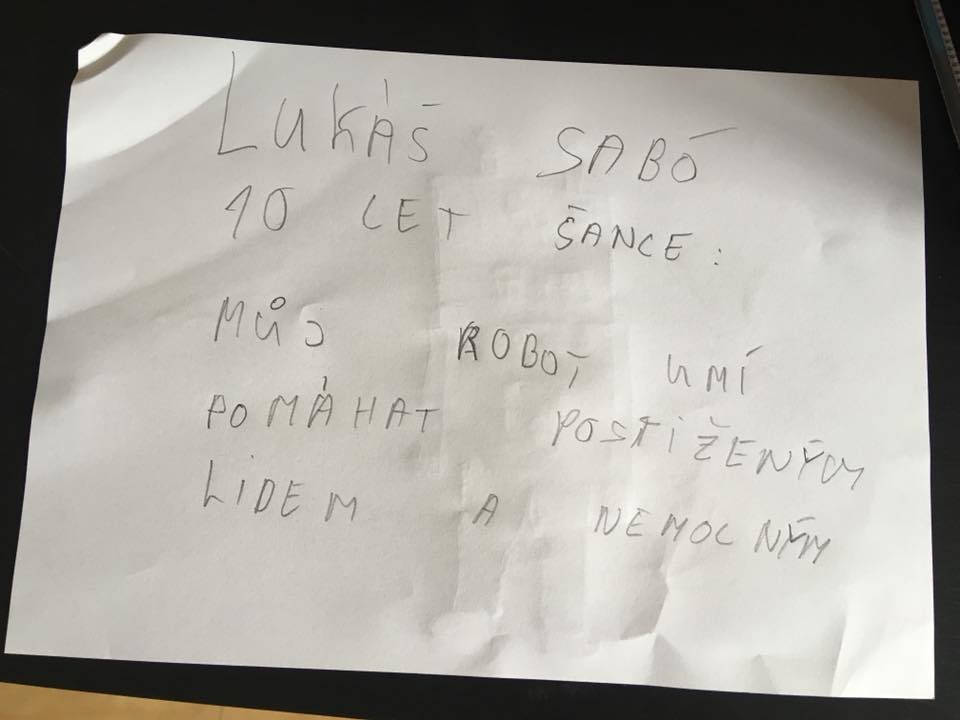 LUKÁŠ SABÓ
10 LET ŠANCE:
MŮJ ROBOT UMÍ
POMÁHAT POSTIŽENÝM
LIDEM A NEMOCNÝM